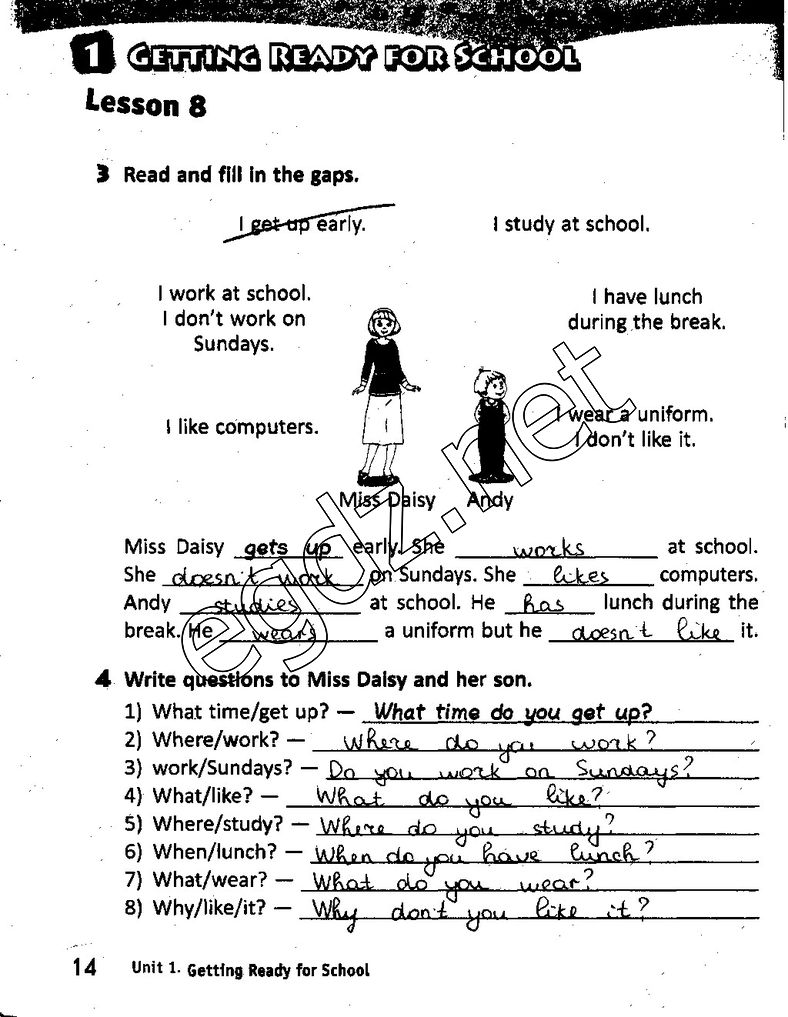 1 GETTING READY FOR SCHOOL
Lesson 8
3 Read and fill in the gaps.
I get up early.
I study at school.
I work at school.
I don't work on
Sundays.
I have lunch
during the break.
I like computers.
I wear a uniform.
I don't like it.
Miss Daisy
Andy
egdz.net
Miss Daisy gets up early. She works at school.
She doesn't work on Sundays. She likes computers.
Andy studies at school. He has lunch during the
break. He wears a uniform but he doesn't like it.
4 Write questions to Miss Daisy and her son.
1) What time/get up? — What time do you get up?
2) Where/work? — Where do you work?
3) work/Sundays? — Do you work on Sundays?
4) What/like? — What do you like?
5) Where/study? — Where do you study?
6) When/lunch? — When do you have lunch?
7) What/wear? — What do you wear?
8) Why/like/it? — Why don't you like it?
14 Unit 1. Getting Ready for School